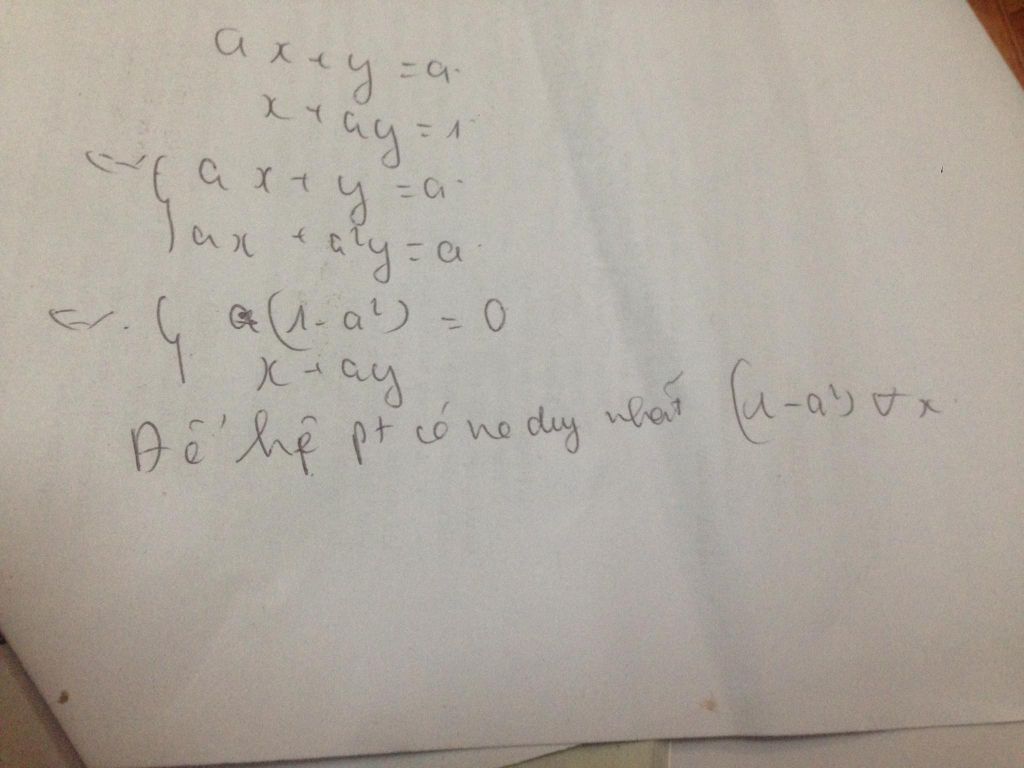 ax + y = a.
x + ay = 1.
<=> { ax + y = a.
ax + a²y = a.
<=>. { (1-a²) = 0
x + ay
Để hệ pt có no duy nhất (1-a²) ∀ x.